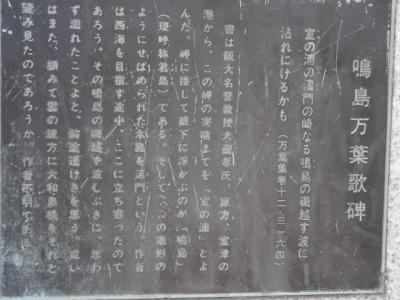 鳴島万葉歌碑
室の浦の湍門の崎なる鳴島の磯越す波に
沾れにけるかも（万葉集巻十二・三一六四）
昔は阪大名誉教授犬養孝氏、東方、室津の
港から、この岬の突端までを「室の浦」とよ
んだ。岬に接して眼下に浮かぶのが「鳴島」
（現呼称君島）である。そして、この地形の
ようにせばめられた水路を湍門という。作者
は西海を目指す途中、ここに立ち寄ったので
あろう。その鳴島の磯越す波しぶきに、思わ
ず濡れたことよと、旅途遥けきを思う。或い
はまた、顧みて雲の彼方に大和島根をそれと
望み見たのであろうか。作者不明である。